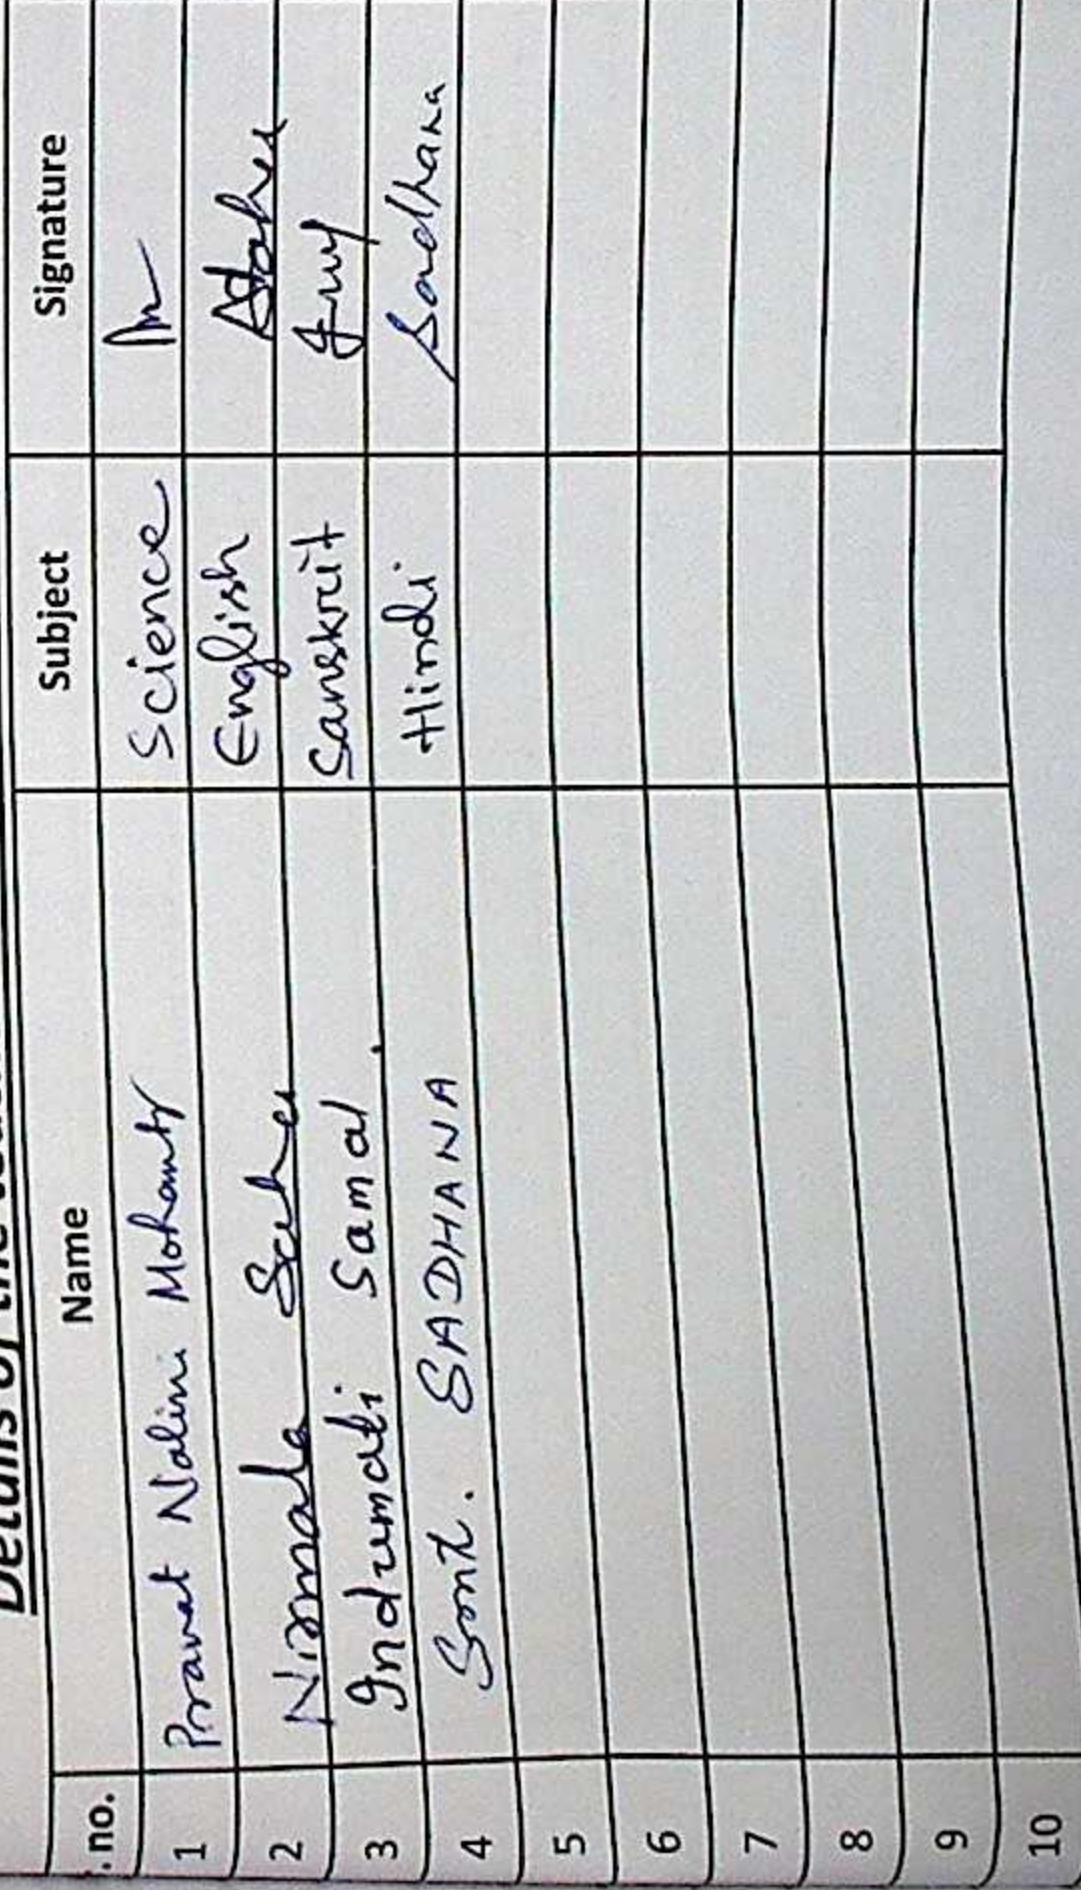 Details of the
. no. Name Subject Signature
1 Pravat Nalini Mohanty Science
2 Nirmala Sahu English
3 Indumati Samal. Sanskrit
4 Smt. SADHANA Hindi Sadhana
5
6
7
8
9
10